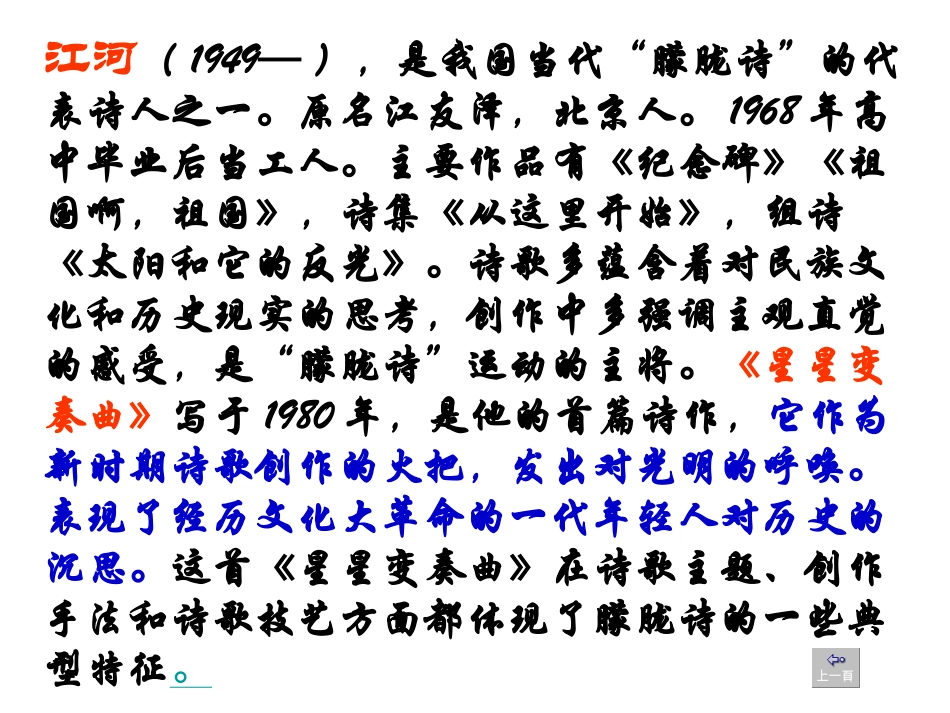 江河（1949— ），是我国当代“朦胧诗”的代
表诗人之一。原名江友泽，北京人。1968 年高
中毕业后当工人。主要作品有《纪念碑》《祖
国啊，祖国》，诗集《从这里开始》，组诗
《太阳和它的反光》。诗歌多蕴含着对民族文
化和历史现实的思考，创作中多强调主观直觉
的感受，是“朦胧诗”运动的主将。《星星变
奏曲》写于 1980 年，是他的首篇诗作，它作为
新时期诗歌创作的火把，发出对光明的呼唤。
表现了经历文化大革命的一代年轻人对历史的
沉思。这首《星星变奏曲》在诗歌主题、创作
手法和诗歌技艺方面都体现了朦胧诗的一些典
型特征。
上一頁